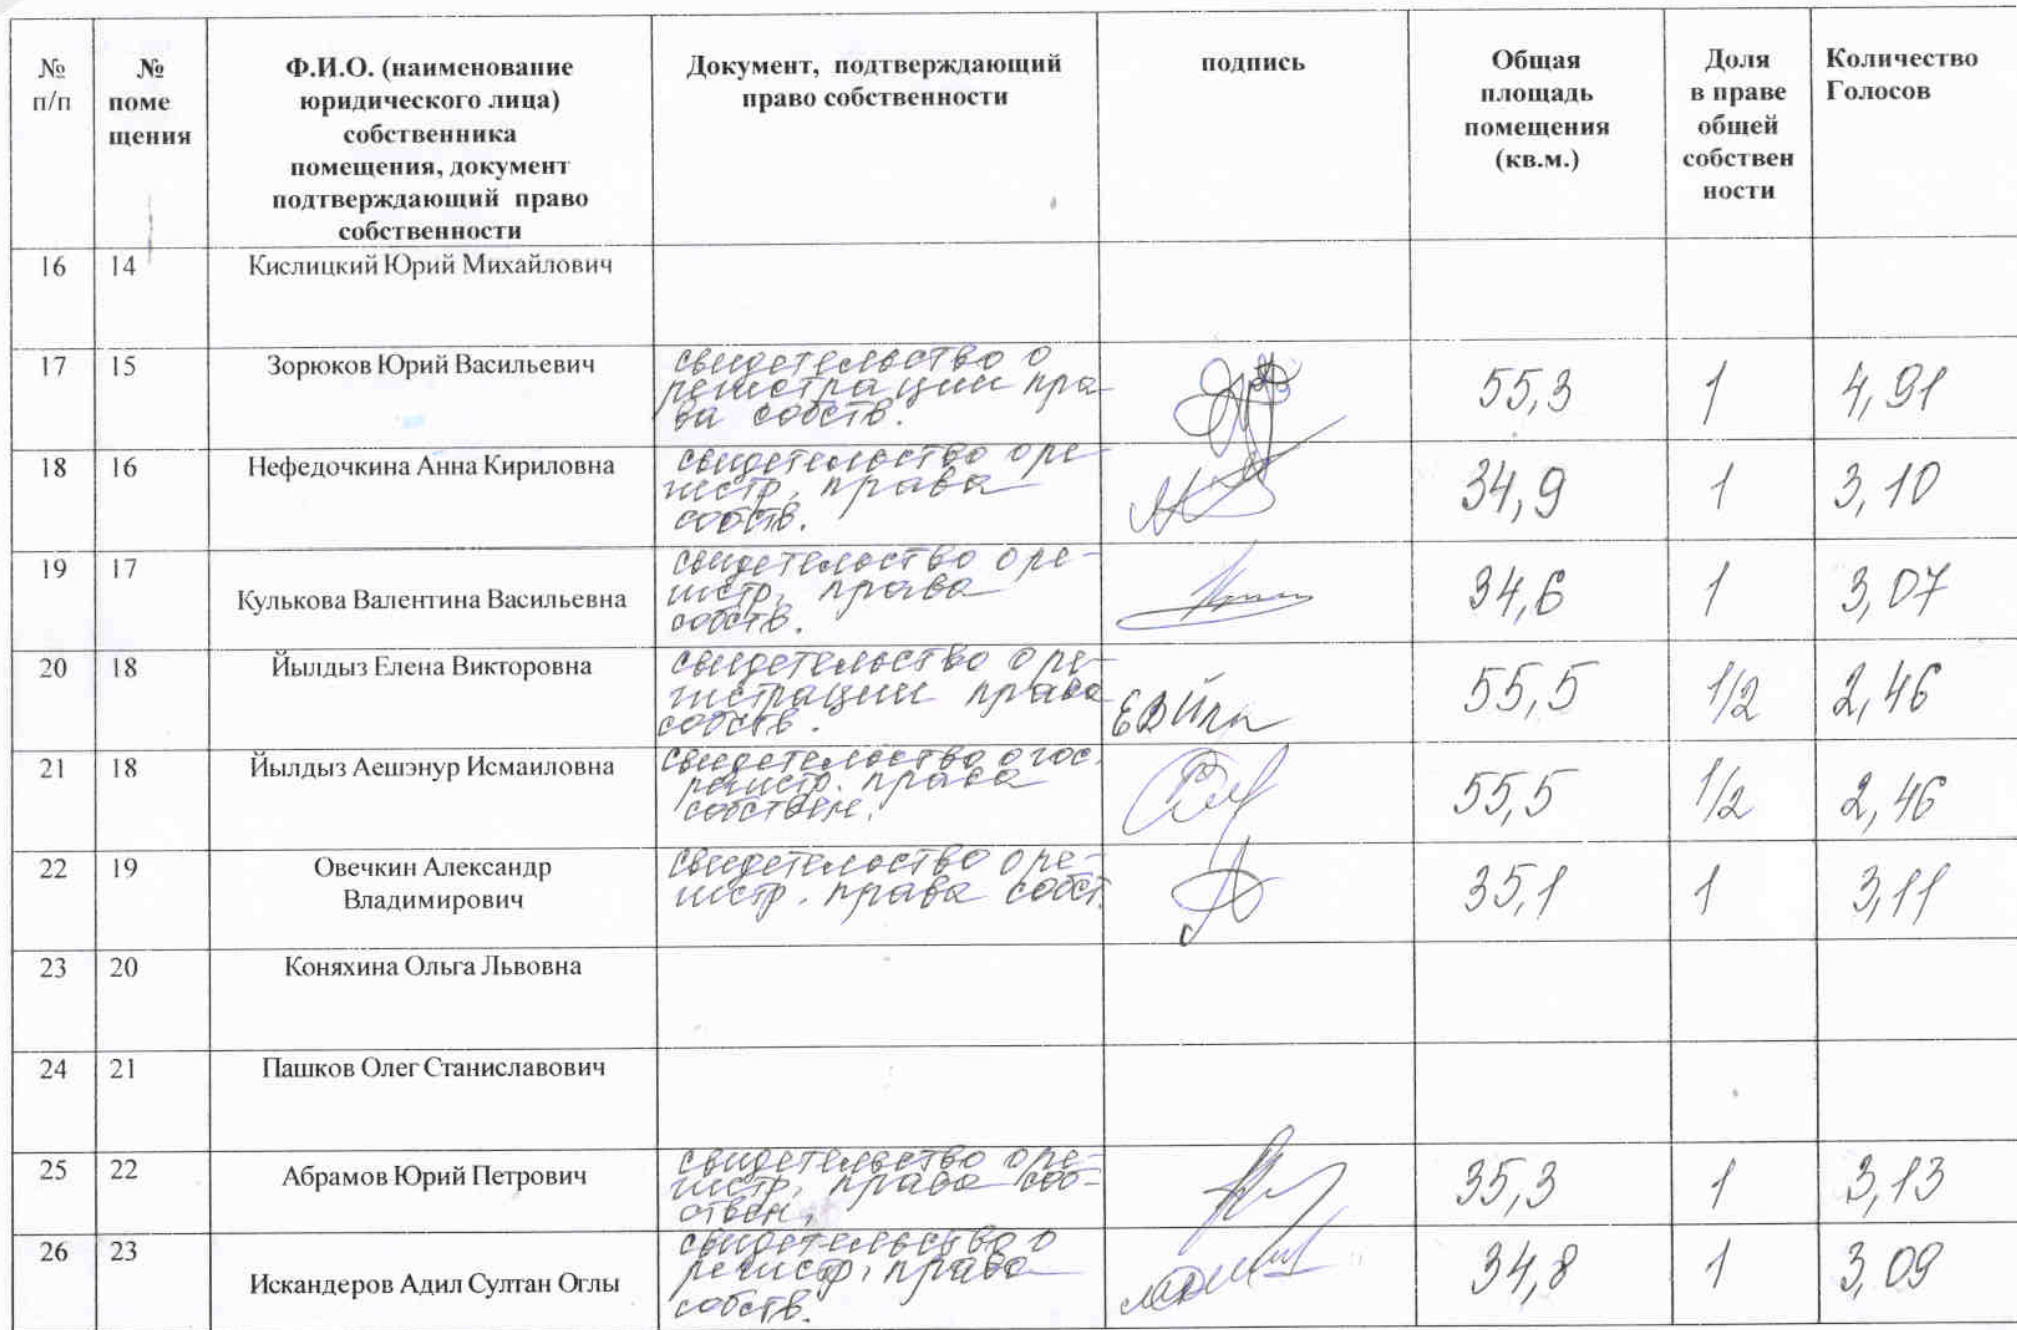 № п/п
№ поме щения
Ф.И.О. (наименование
юридического лица)
собственника
помещения, документ
подтверждающий право
собственности
Документ, подтверждающий
право собственности
подпись
Общая
площадь
помещения
(кв.м.)
Доля
в праве
общей
собствен
ности
Количество
Голосов
16 14 Кислицкий Юрий Михайлович
17 15 Зорюков Юрий Васильевич
свидетельство о
регистрации пра-
ва собств.
55,3 1 4,91
18 16 Нефедочкина Анна Кириловна
свидетельство о ре
гистр. права
собств.
34,9 1 3,10
19 17
Кулькова Валентина Васильевна
свидетельство о ре-
гистр. права
собств.
34,6 1 3,07
20 18 Йылдыз Елена Викторовна
свидетельство о ре-
гистрации права
собств.
55,5 1/2 2,46
21 18 Йылдыз Аешэнур Исмаиловна
свидетельство о гос.
регистр. права
собствен.
55,5 1/2 2,46
22 19 Овечкин Александр
Владимирович
свидетельство о ре-
гистр. права собст.
35,1 1 3,11
23 20 Коняхина Ольга Львовна
24 21 Пашков Олег Станиславович
25 22 Абрамов Юрий Петрович
свидетельство о ре-
гистр. права соб-
ствен.
35,3 1 3,13
26 23
Искандеров Адил Султан Оглы
свидетельство о
регистр. права
собств.
34,8 1 3,09